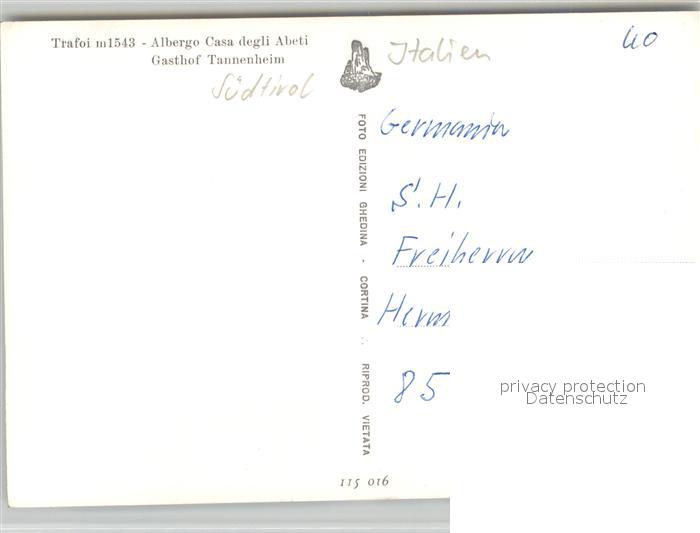 Trafoi m1543 - Albergo Casa degli Abeti
Gasthof Tannenheim
Südtirol
Italien
40
FOTO EDIZIONI GHEDINA - CORTINA ∴ RIPROD. VIETATA
Germania
S.H.
Freiherrn
Herm
85
privacy protection
Datenschutz
115 016